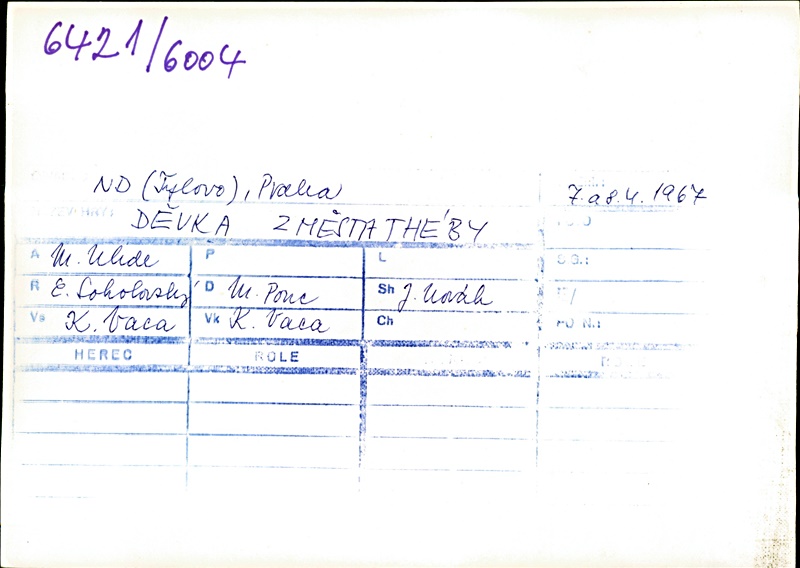 6421/6004
ND (Tylovo), Praha 7. a 8.4. 1967
DĚVKA Z MĚSTA THÉBY
A M. Uhde P L
R E. Sokolovský D M. Ponc Sh J. Novák
Vs K. Vaca Vk K. Vaca Ch
HEREC ROLE